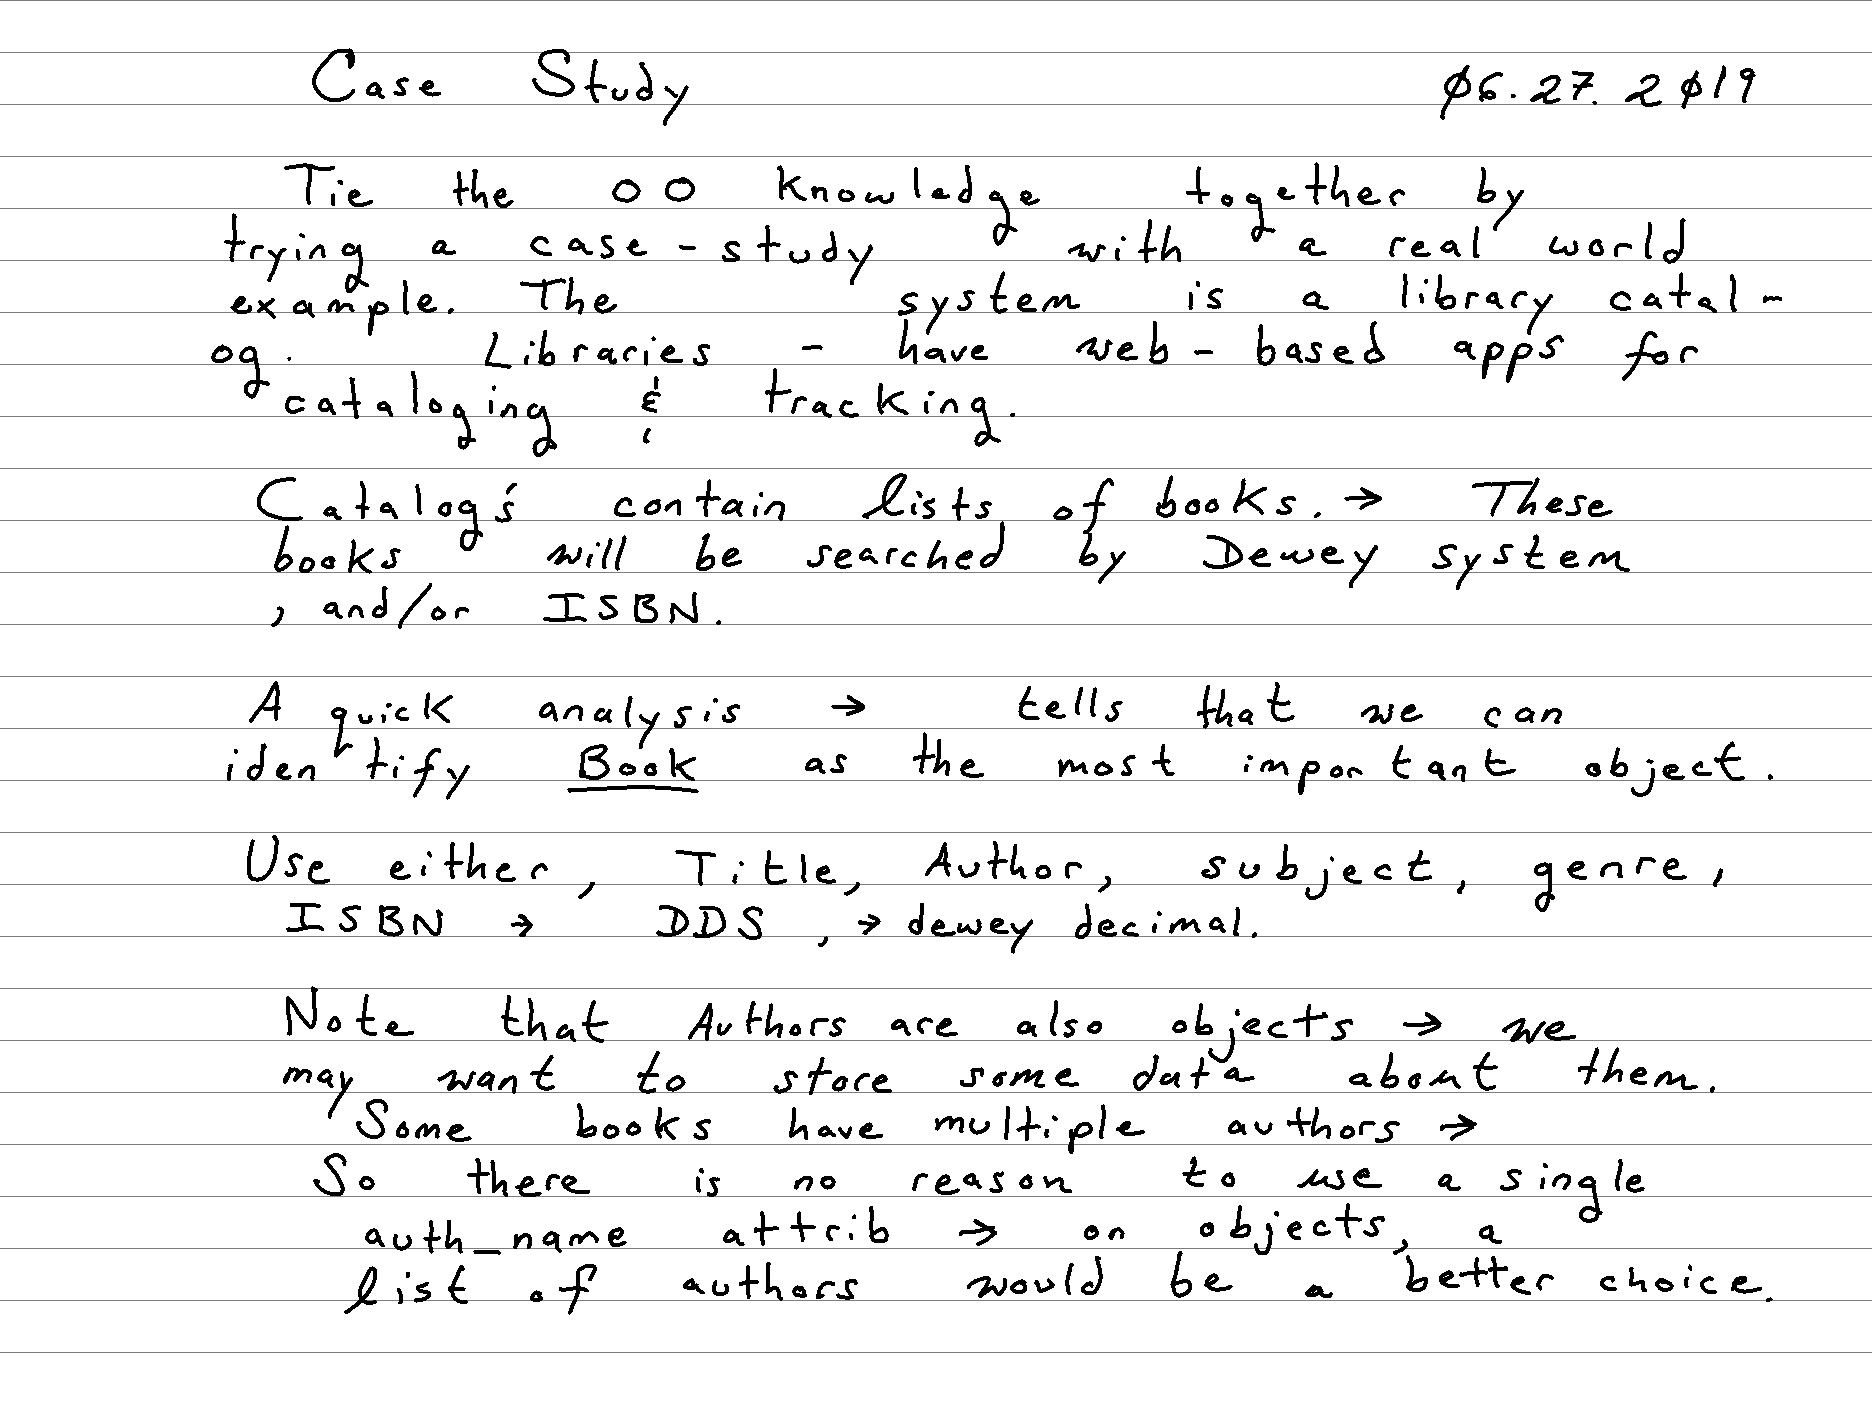 Case Study 06.27.2019
Tie the OO knowledge together by
trying a case-study with a real world
example. The system is a library catal-
og. Libraries - have web-based apps for
cataloging & tracking.
Catalog's contain lists of books. → These
books will be searched by Dewey system
, and/or ISBN.
A quick analysis → tells that we can
identify Book as the most important object.
Use either, Title, Author, subject, genre,
ISBN → DDS , → dewey decimal.
Note that Authors are also objects → we
may want to store some data about them.
Some books have multiple authors →
So there is no reason to use a single
auth_name attrib → on objects, a
list of authors would be a better choice.